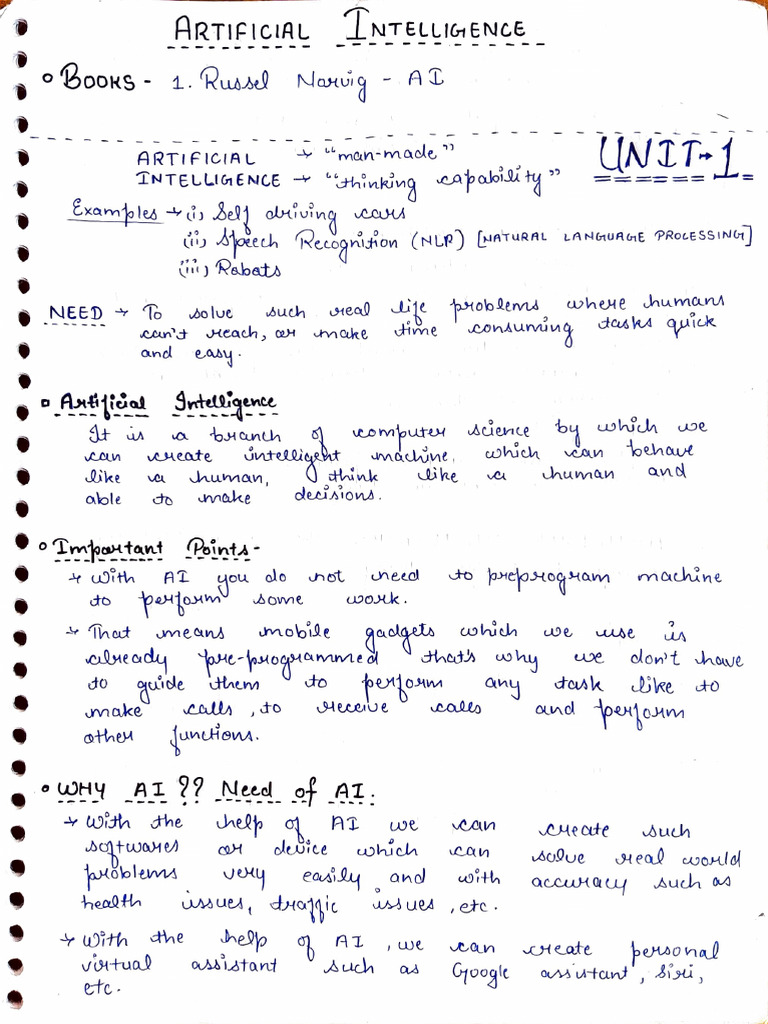 ARTIFICIAL INTELLIGENCE
BOOKS - 1. Russel Narvig - AI
ARTIFICIAL → "man-made"
UNIT-1
INTELLIGENCE → "thinking capability"
Examples → (i) Self driving cars
(ii) Speech Recognition (NLP) [NATURAL LANGUAGE PROCESSING]
(iii) Robats
NEED → To solve such real life problems where humans
can't reach, or make time consuming tasks quick
and easy.
Artificial Intelligence
It is a branch of computer science by which we
can create intelligent machine, which can behave
like a human, think like a human and
able to make decisions.
Important Points-
→ With AI you do not need to preprogram machine
to perform some work.
→ That means mobile gadgets which we use is
already pre-programmed that's why we don't have
to guide them to perform any task like to
make calls, to receive calls and perform
other functions.
WHY AI?? Need of AI:
→ With the help of AI we can create such
softwares or device which can solve real world
problems very easily and with accuracy such as
health issues, traffic issues, etc.
→ With the help of AI, we can create personal
virtual assistant such as Google assistant, Siri,
etc.